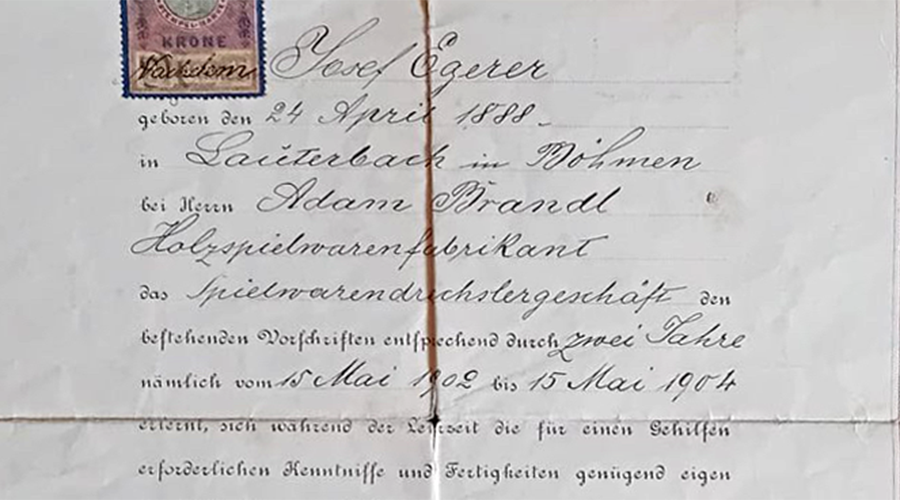 KRONE
Nachdem Josef Egerer
geboren den 24 April 1888.
in Lauterbach in Böhmen
bei Herrn Adam Brandl
Holzspielwarenfabrikant
das Spielwarendrechslergeschäft den
bestehenden Vorschriften entsprechend durch zwei Jahre
nämlich vom 15 Mai 1902 bis 15 Mai 1904
erlernt, sich während der Lehrzeit die für einen Gehilfen
erforderlichen Kenntnisse und Fertigkeiten genügend eigen